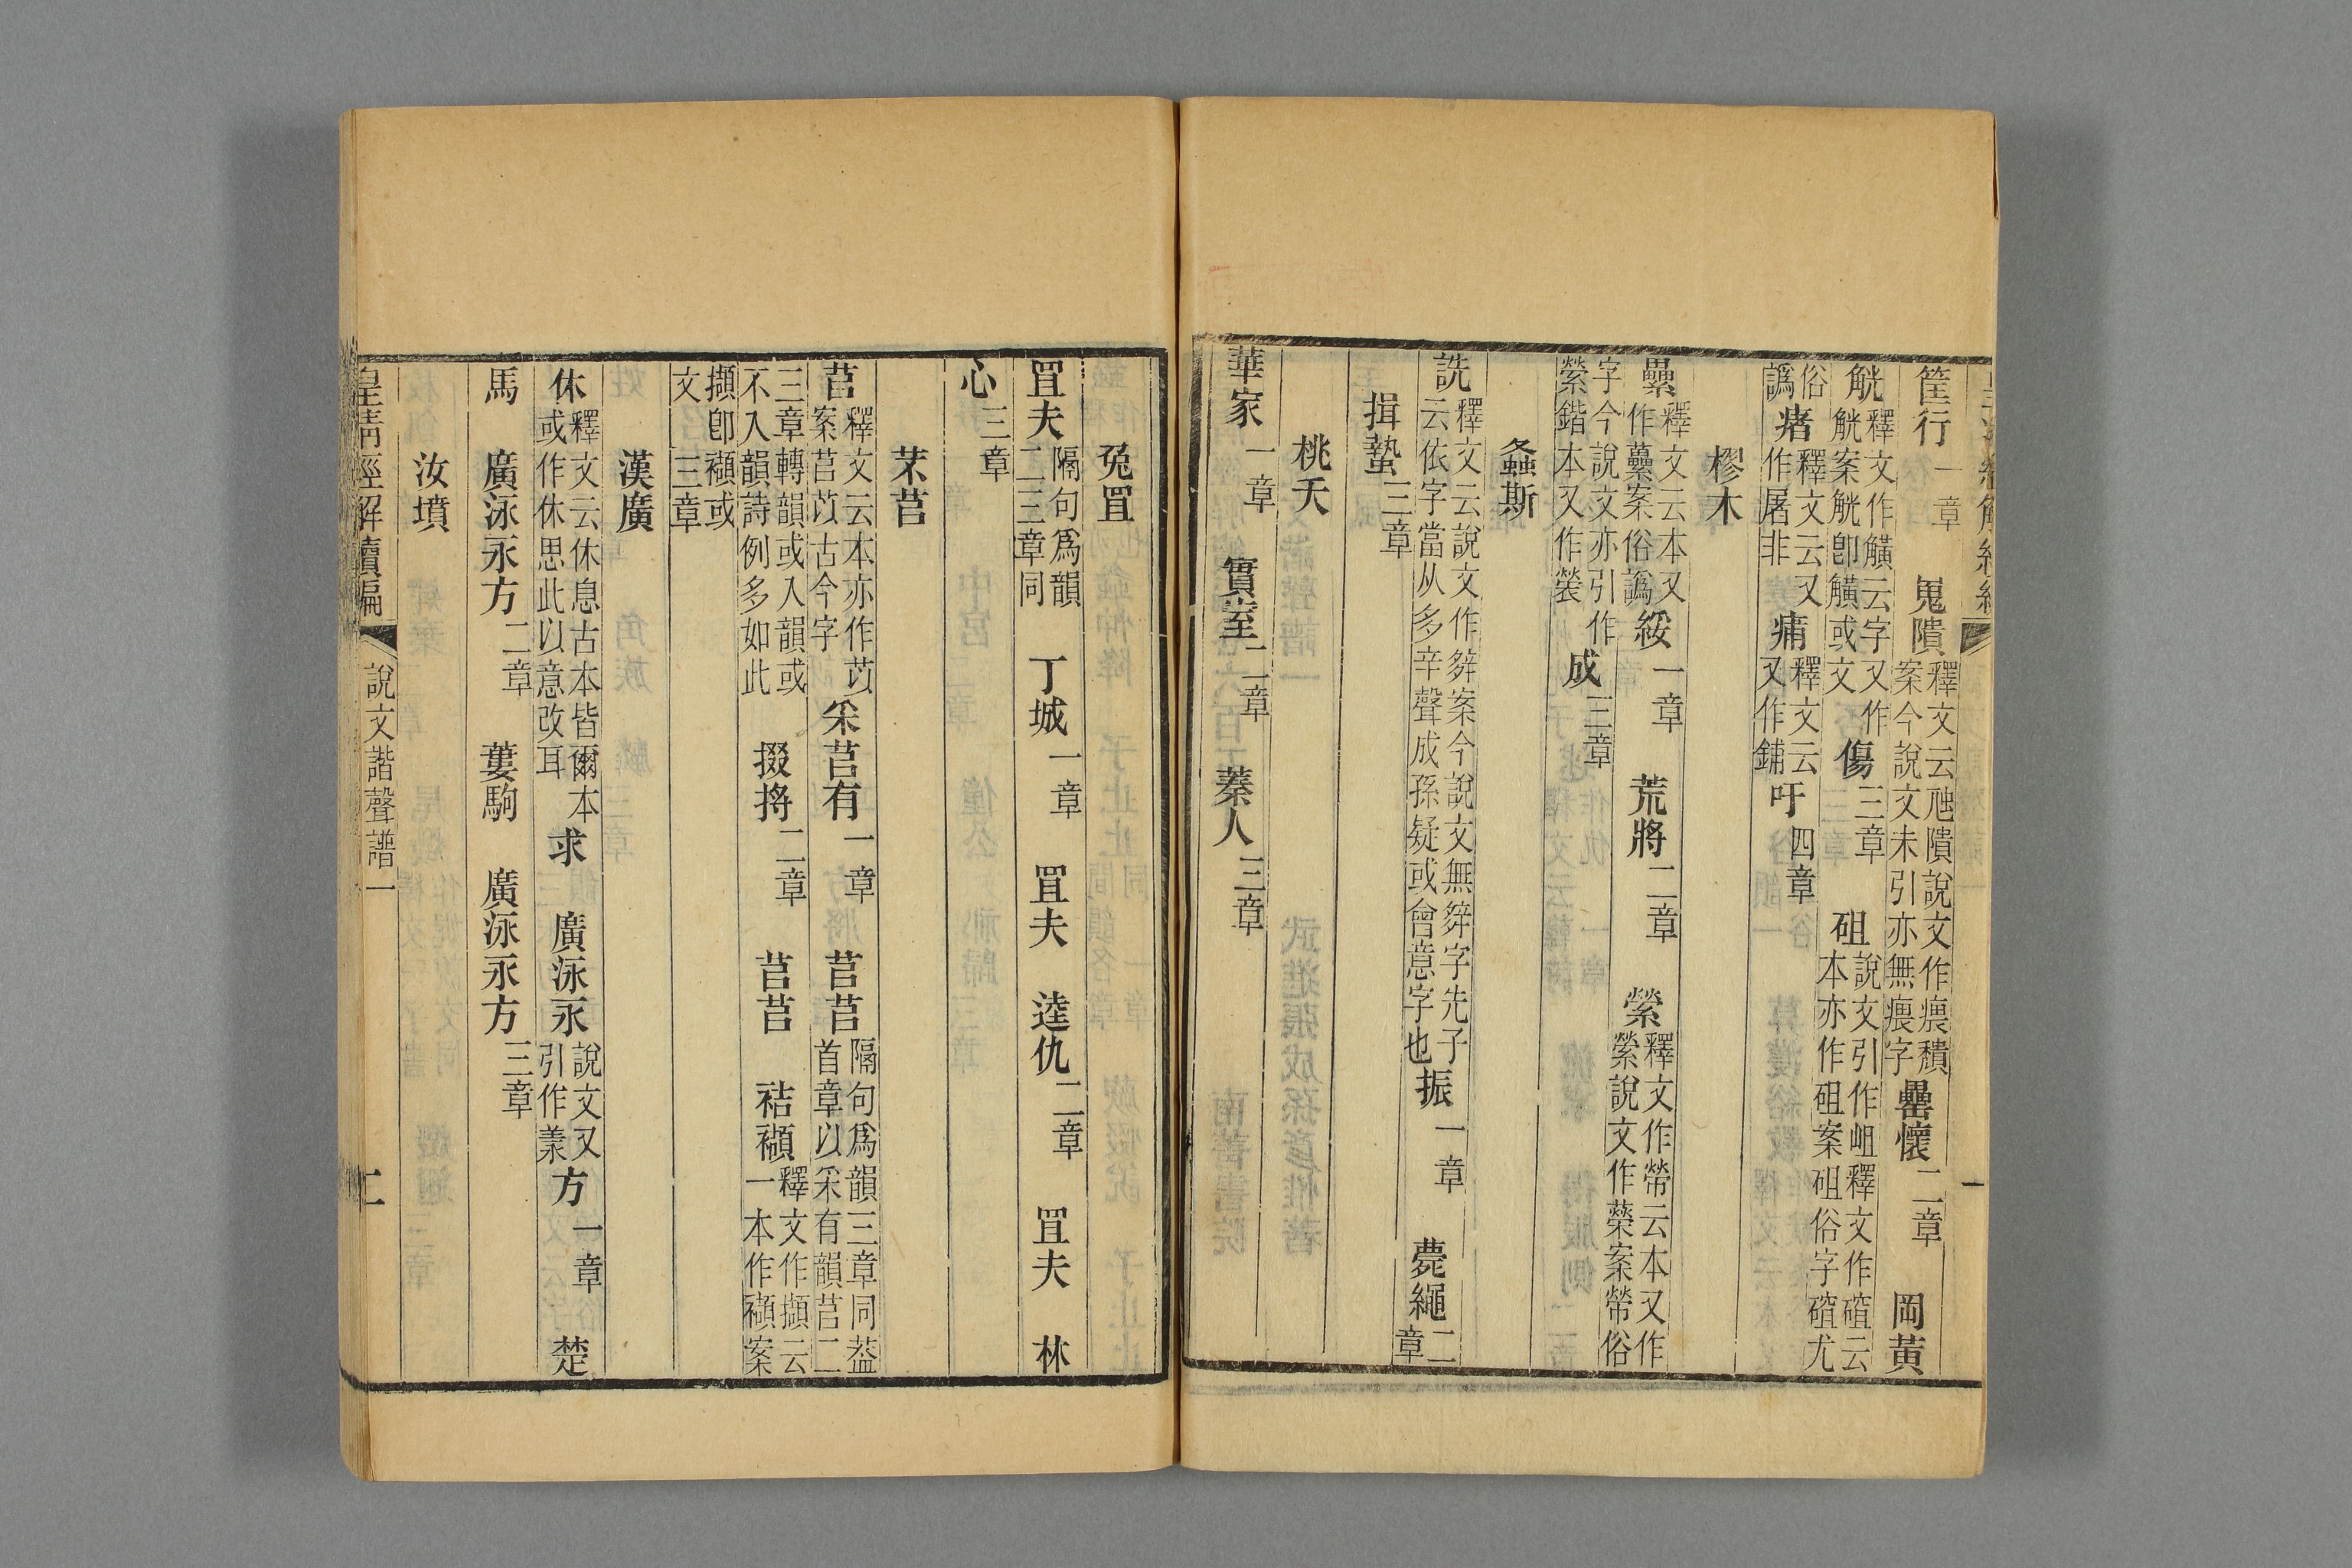 筐行一章　嵬隤釋文云虺隤說文作㾯穨案今說文未引亦無㾯字罍懷二章　岡黃
觥釋文作觵云字又作觥案觥卽觵或文傷三章　砠說文引作岨釋文作碹云本亦作砠案砠俗字碹尤
俗譌瘏釋文云又作屠非痡釋文云又作鋪吁四章
樛木
纍釋文云本又作虆案俗譌綏一章　荒將二章　縈釋文作帶云本又作縈說文作藥案帶俗
字今說文亦引作縈鍇本又作褮成三章
螽斯
詵釋文云說文作𨐔案今說文無𨐔字先子云依字當从多辛聲成孫疑或會意字也振一章　薨繩二章
揖蟄三章
桃夭
華家一章　實室二章　蓁人三章
兔罝
罝夫隔句爲韻二三章同　丁城一章　罝夫　逵仇二章　罝夫　林
心三章
芣苢
苢釋文云本亦作苡案苢苡古今字采苢有一章　苢苢隔句爲韻三章同葢首章以采有韻苢二
三章轉韻或入韻或不入韻詩例多如此　掇捋二章　苢苢　袺襭釋文作擷云一本作襭案
擷卽襭或文三章
漢廣
休釋文云休息古本皆爾本或作休思此以意改耳求　廣泳永說文又引作羕方一章　楚
馬　廣泳永方二章　蔞駒　廣泳永方三章
汝墳
皇淸經解續編　說文諧聲譜一　二